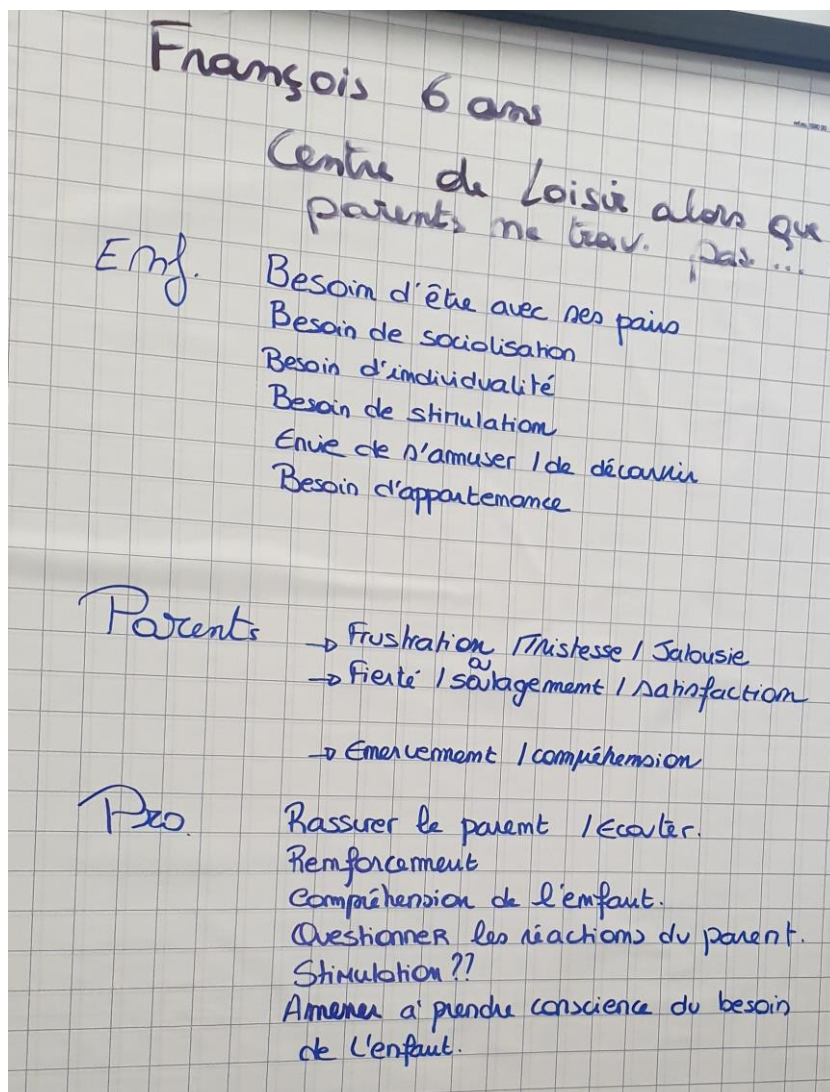 François 6 ans
Centre de Loisir alors que
parents ne trav. pas...
Enf.
Besoin d'être avec ses pairs
Besoin de socialisation
Besoin d'individualité
Besoin de stimulation
Envie de s'amuser / de découvrir
Besoin d'appartenance
Parents
→ Frustration / Tristesse / Jalousie
→ Fierté / soulagement / satisfaction
→ Emercement / compréhension
Pro.
Rassurer le parent / Ecouter.
Renforcement
Compréhension de l'enfant.
Questionner les réactions du parent.
Stimulation ??
Amener à prendre conscience du besoin
de l'enfant.